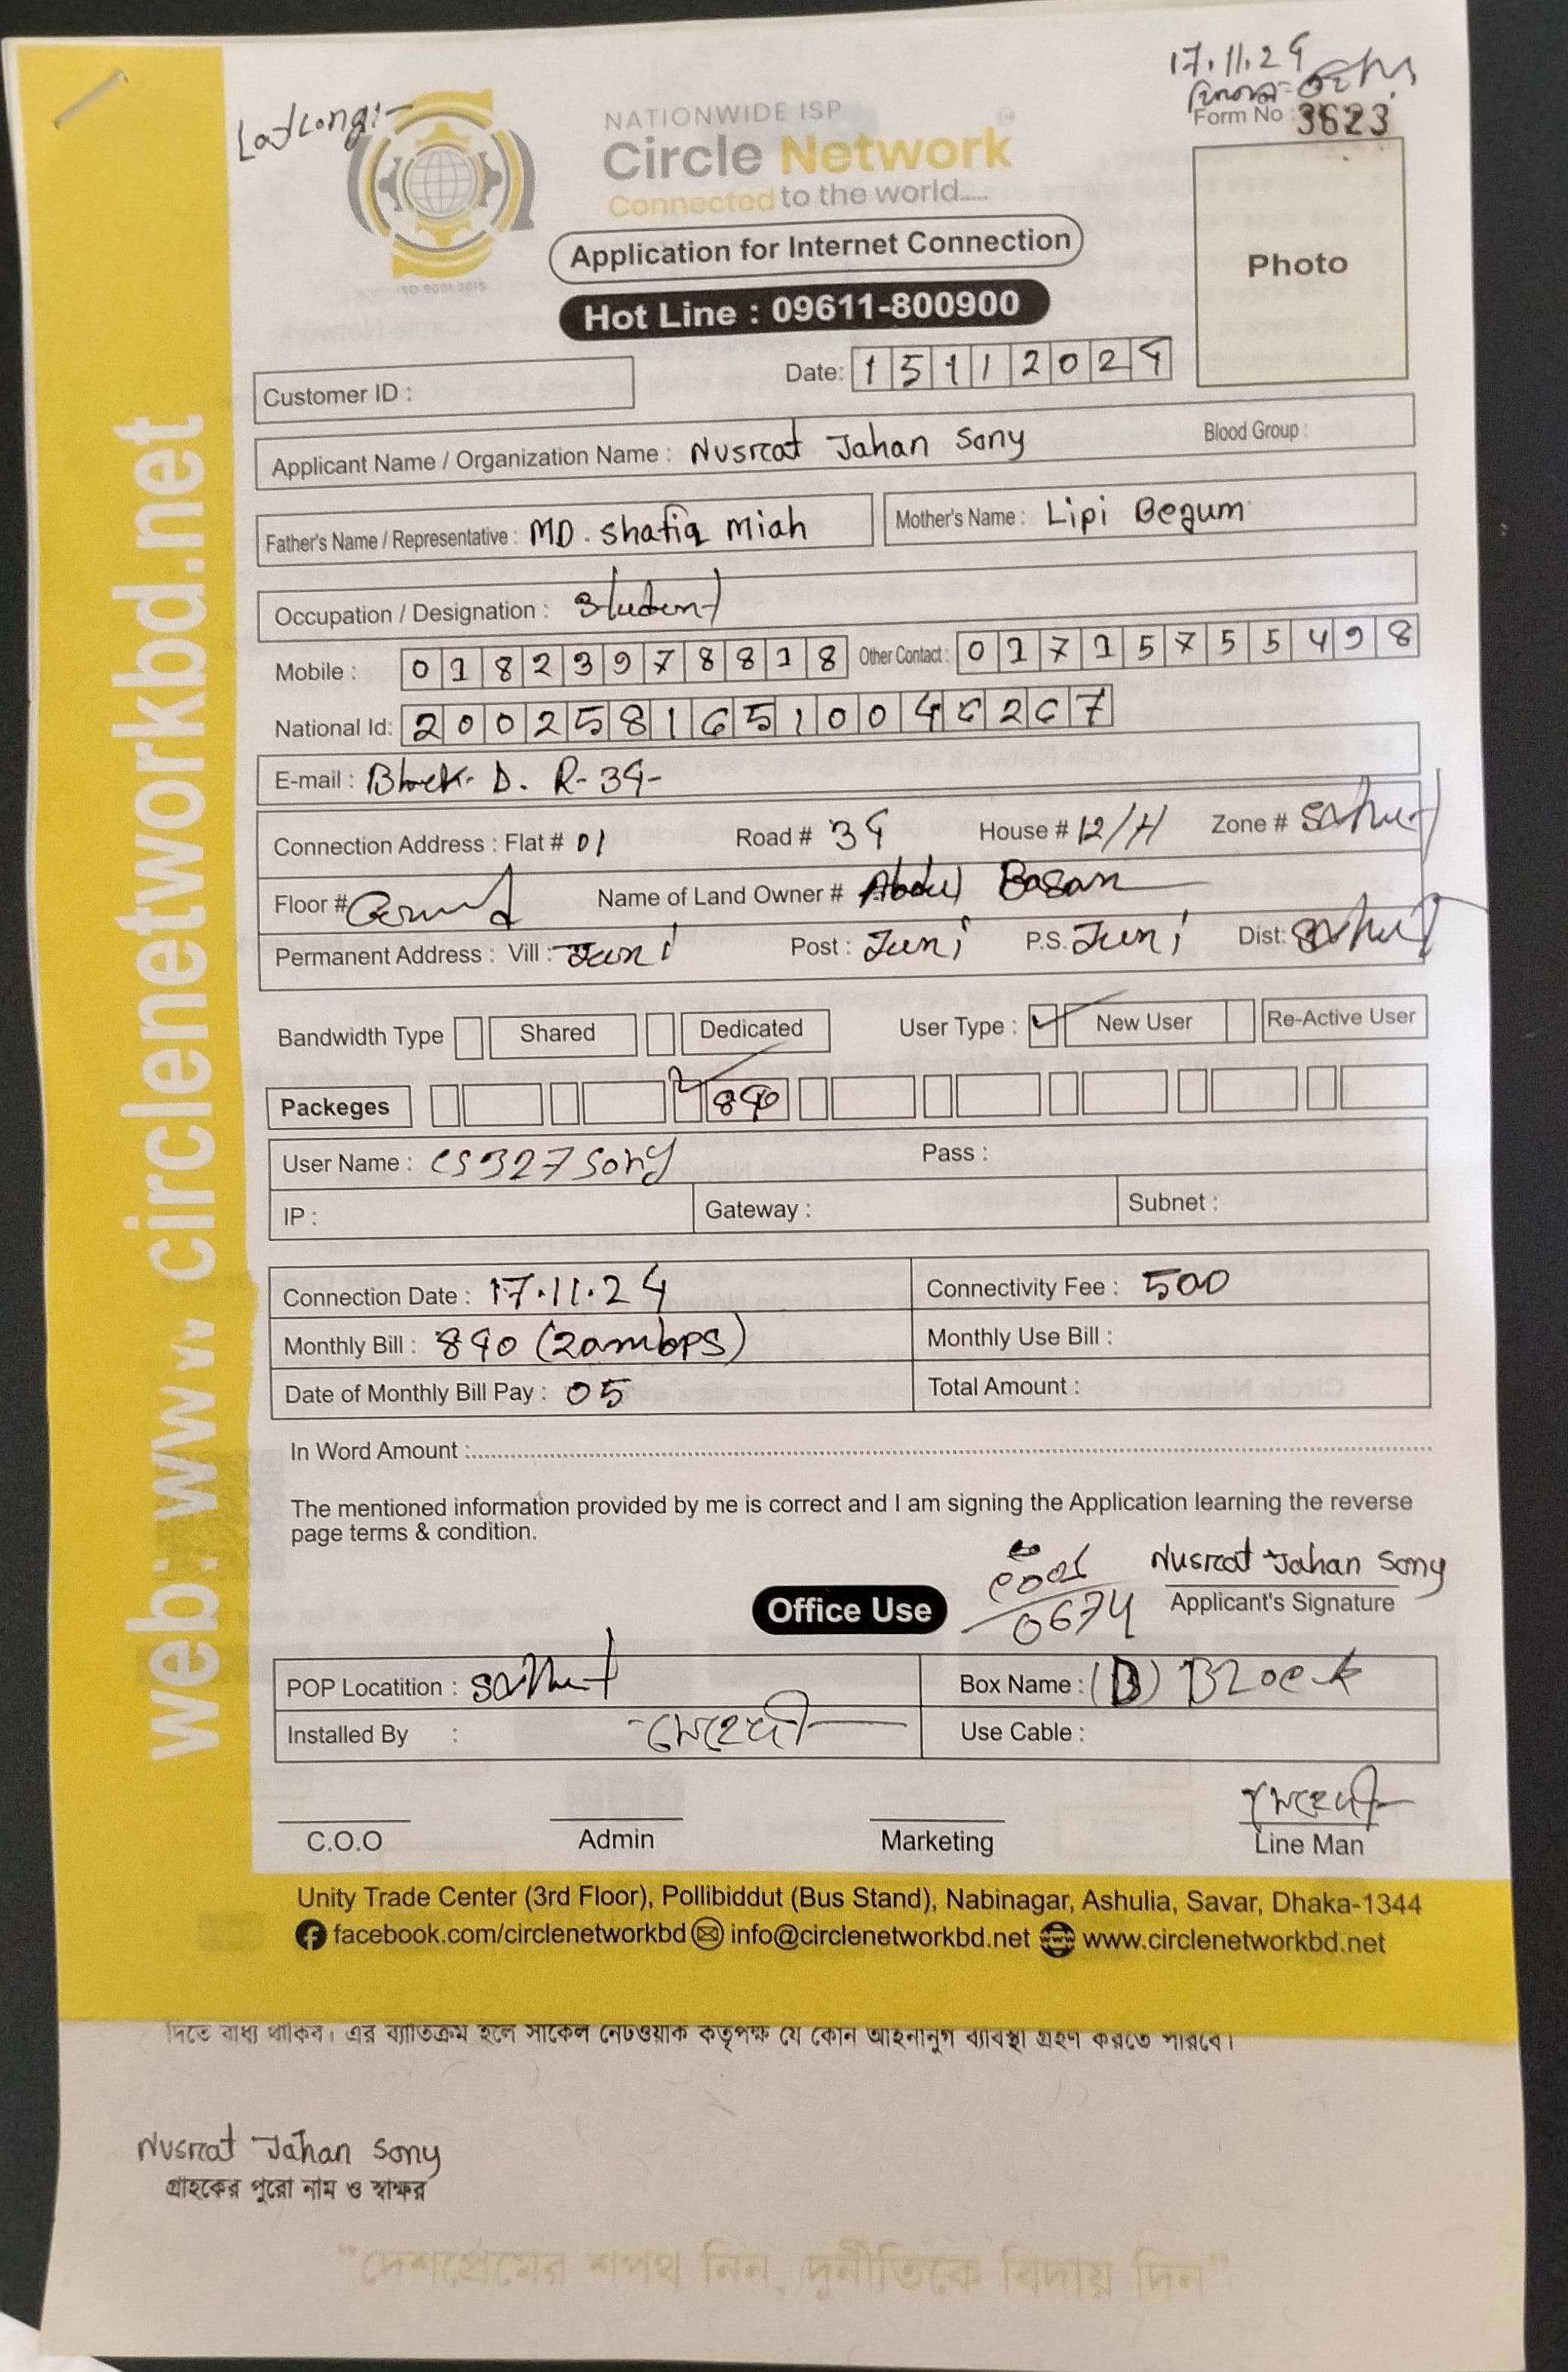 17.11.24
LatLong:-
Form No : 3623
NATIONWIDE ISP
Circle Network
Connected to the world.....
ISO 9001:2015
Application for Internet Connection
Photo
Hot Line : 09611-800900
Customer ID :
Date: 15112024
Applicant Name / Organization Name : Nusrat Jahan Sony Blood Group :
Father's Name / Representative : MD. Shafiq Miah Mother's Name : Lipi Begum
Occupation / Designation : Student
Mobile : 01823978818 Other Contact : 01715755498
National Id: 20025816510046267
E-mail : Block- D. R-34-
Connection Address : Flat # 01 Road # 34 House # 12/H Zone #
Floor # Name of Land Owner # Abdul
Permanent Address : Vill : Post : P.S. Dist:
Bandwidth Type Shared Dedicated User Type : New User Re-Active User
Packeges 840
User Name : cs327sony Pass :
IP : Gateway : Subnet :
Connection Date : 17.11.24 Connectivity Fee : 500
Monthly Bill : 840 (20mbps) Monthly Use Bill :
Date of Monthly Bill Pay : 05 Total Amount :
In Word Amount :
The mentioned information provided by me is correct and I am signing the Application learning the reverse
page terms & condition.
Nusrat Jahan Sony
Office Use 0674 Applicant's Signature
POP Locatition : Box Name : (D) Block
Installed By : মেহেদী Use Cable :
মেহেদী
C.O.O Admin Marketing Line Man
Unity Trade Center (3rd Floor), Pollibiddut (Bus Stand), Nabinagar, Ashulia, Savar, Dhaka-1344
facebook.com/circlenetworkbd info@circlenetworkbd.net www.circlenetworkbd.net
web: www.circlenetworkbd.net
দিতে বাধ্য থাকিব। এর ব্যতিক্রম হলে সার্কেল নেটওয়ার্ক কর্তৃপক্ষ যে কোন আইনানুগ ব্যবস্থা গ্রহণ করতে পারবে।
Nusrat Jahan Sony
গ্রাহকের পুরো নাম ও স্বাক্ষর
"দেশপ্রেমের শপথ নিন, দুর্নীতিকে বিদায় দিন"